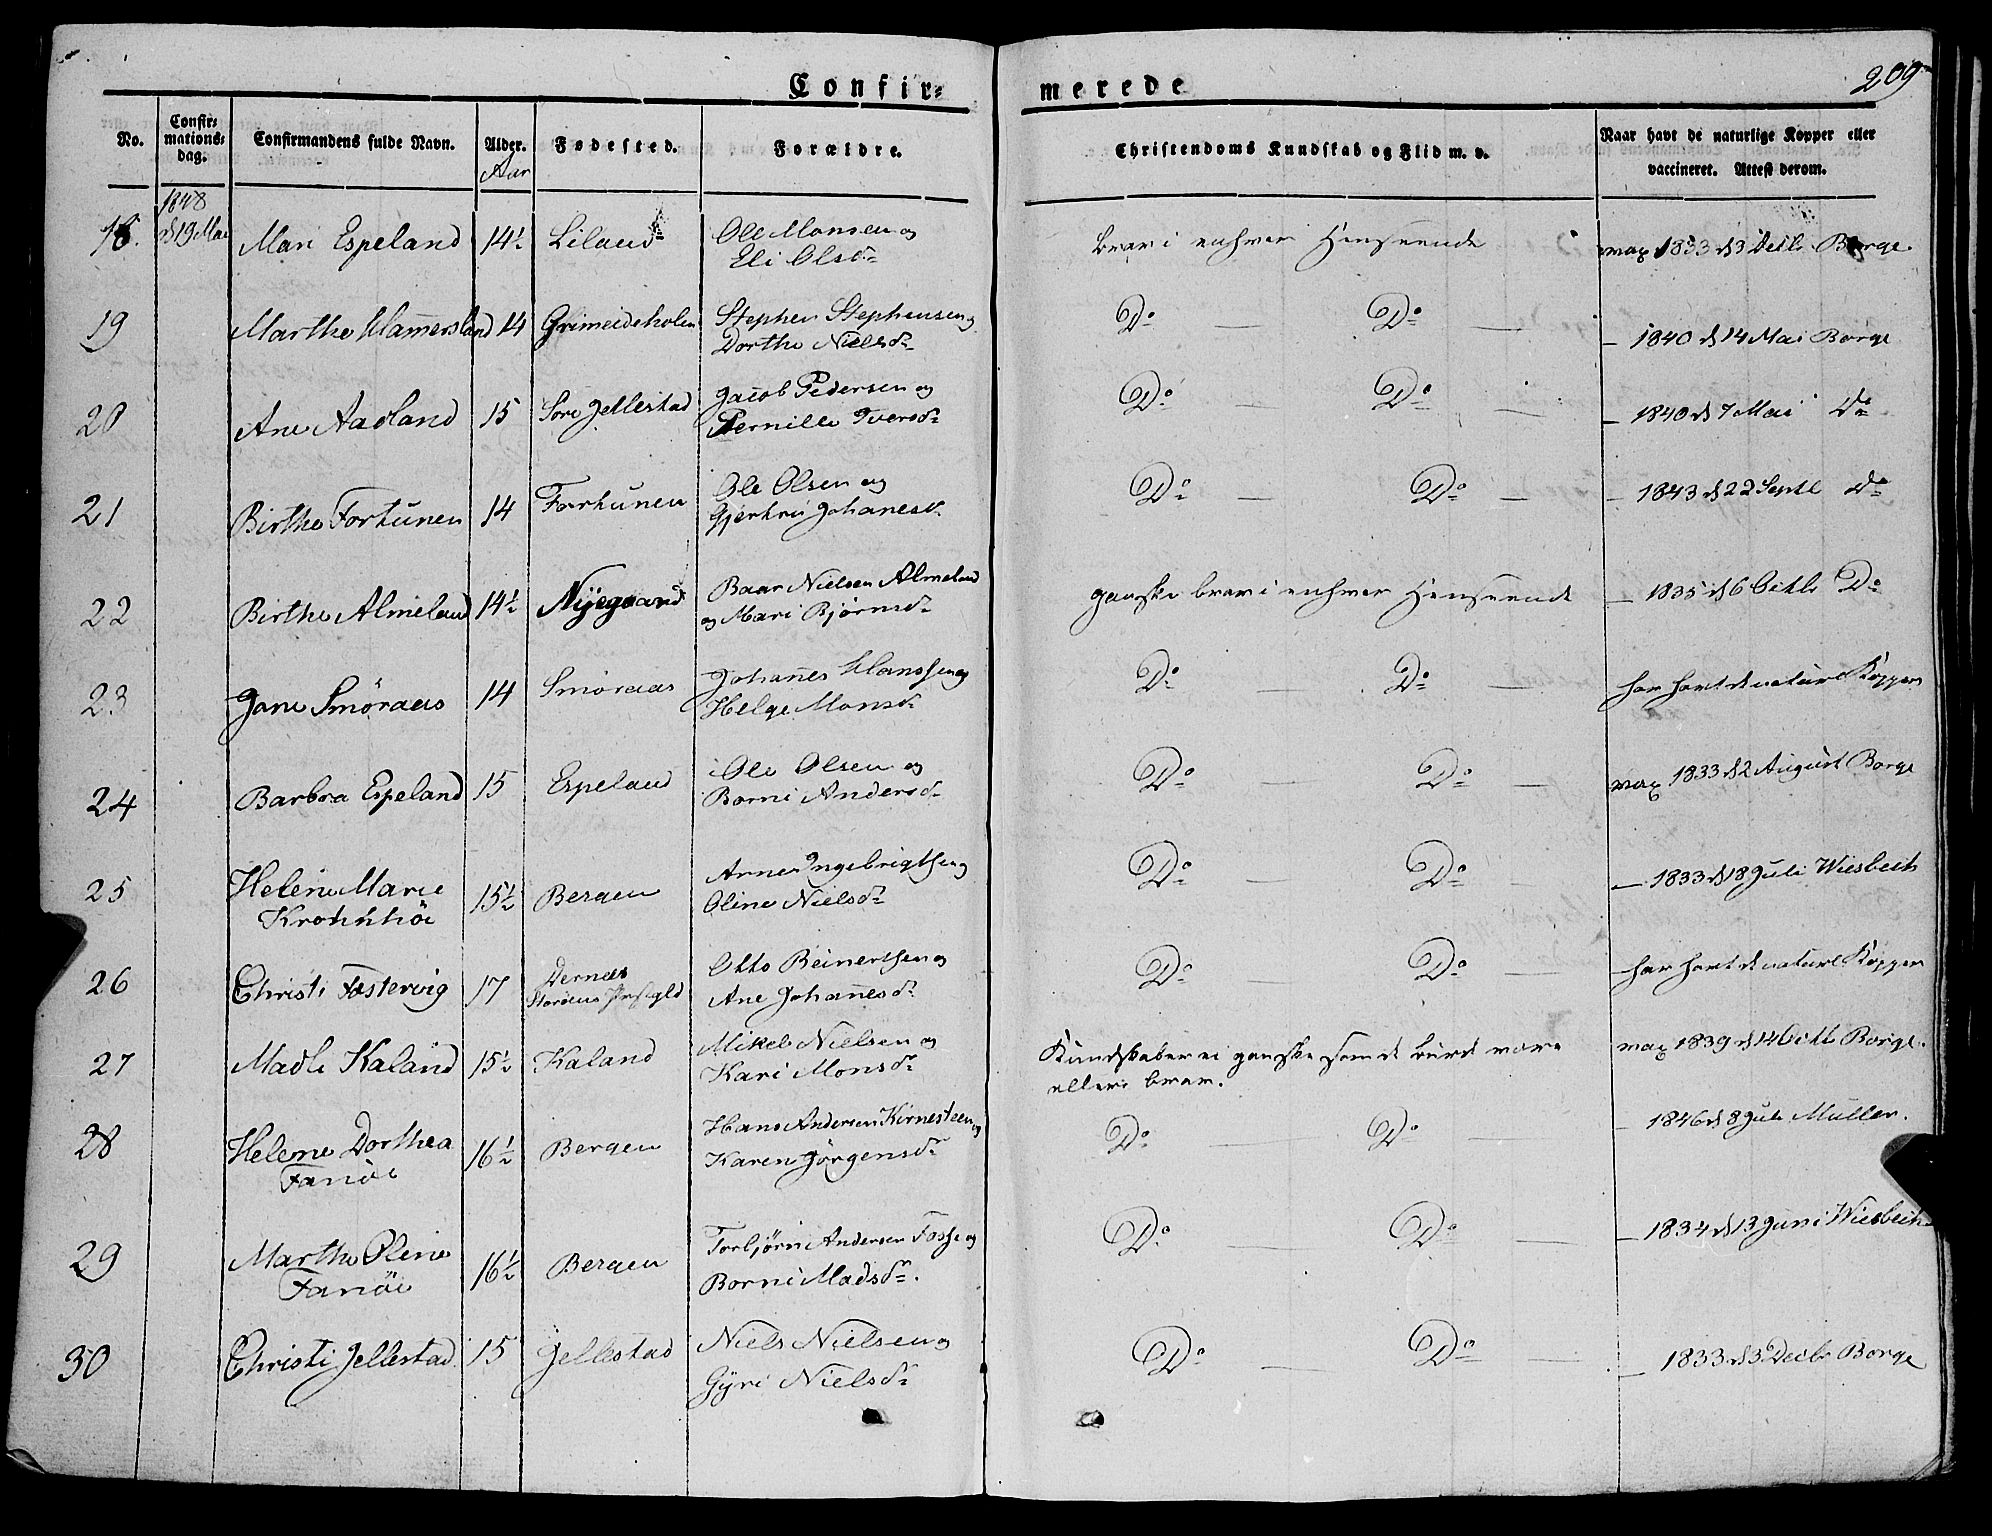 Confir- merede
209
No. Confir-mations-dag. Confirmandens fulde Navn. Alder. Fødested. Forældre. Christendoms Kundskab og Flid m. v. Naar havt de naturlige Kopper eller vaccineret. Attest derom.
Aar
1848
18. d 19 Mai Mari Espeland 14½ Liland Ole Monsen og Eli Olsdr brav i enhver Henseende vax 1833 d 3 Decbr Borge.
19 Marthe Hammersland 14 Grimeideholen Stephen Stephensen og Dorthe Nielsdr Do — Do — — 1840 d 14 Mai Borge
20 Ane Aadland 15 Søre Jellestad Jacob Pedersen og Pernille Iversdr Do — Do — — 1840 d 7 Mai do
21 Birthe Fortunen 14 Fortunen Ole Olsen og Gjertru Johanesdr Do — Do — — 1843 d 22 Septb do
22 Birthe Almeland 14½ Nÿegaard Baar Nielsen Almeland og Mari Bjørnsdr ganske brav i enhver Henseende — 1835 d 6 Octbr Do
23 Jane Smöraas 14 Smøraas Johanes Hanssen og Helge Monsdr Do — Do — har havt de naturl Kopper
24 Barbra Espeland 15 Espeland Ole Olsen og Borni Andersdr Do — Do — vax 1833 d 2 August Borge
25 Helene Marie Krohnhöi 15½ Bergen Arne Ingebrigtsen og Oline Nielsdr Do — Do — — 1833 d 18 Juli Wiesbech
26 Christi Fæstervig 17 Dernæs Storøens Præstgld Otto Reinertsen og Ane Johanesdr Do — Do — har havt de naturl Kopper
27 Madli Kaland 15½ Kaland Mikel Nielsen og Kari Monsdr Kundskaber ei ganske som de burde være ellers brav. vax 1839 d 14 Octb Borge.
28 Helene Dorthea Fanöe 16½ Bergen Hans Andersen Kirnesteen og Karen Jørgensdr Do — Do — — 1846 d 8 Juli Müller.
29 Marthe Oline Fanöe 16½ Bergen Torbjörn Andersen Fosse og Borni Madsdr. Do — Do — — 1834 d 13 Juni Wiesbech
30 Christi Jellestad 15 Jellestad Niels Nielsen og Gÿri Nielsdr Do — Do — — 1833 d 3 Decbr Borge